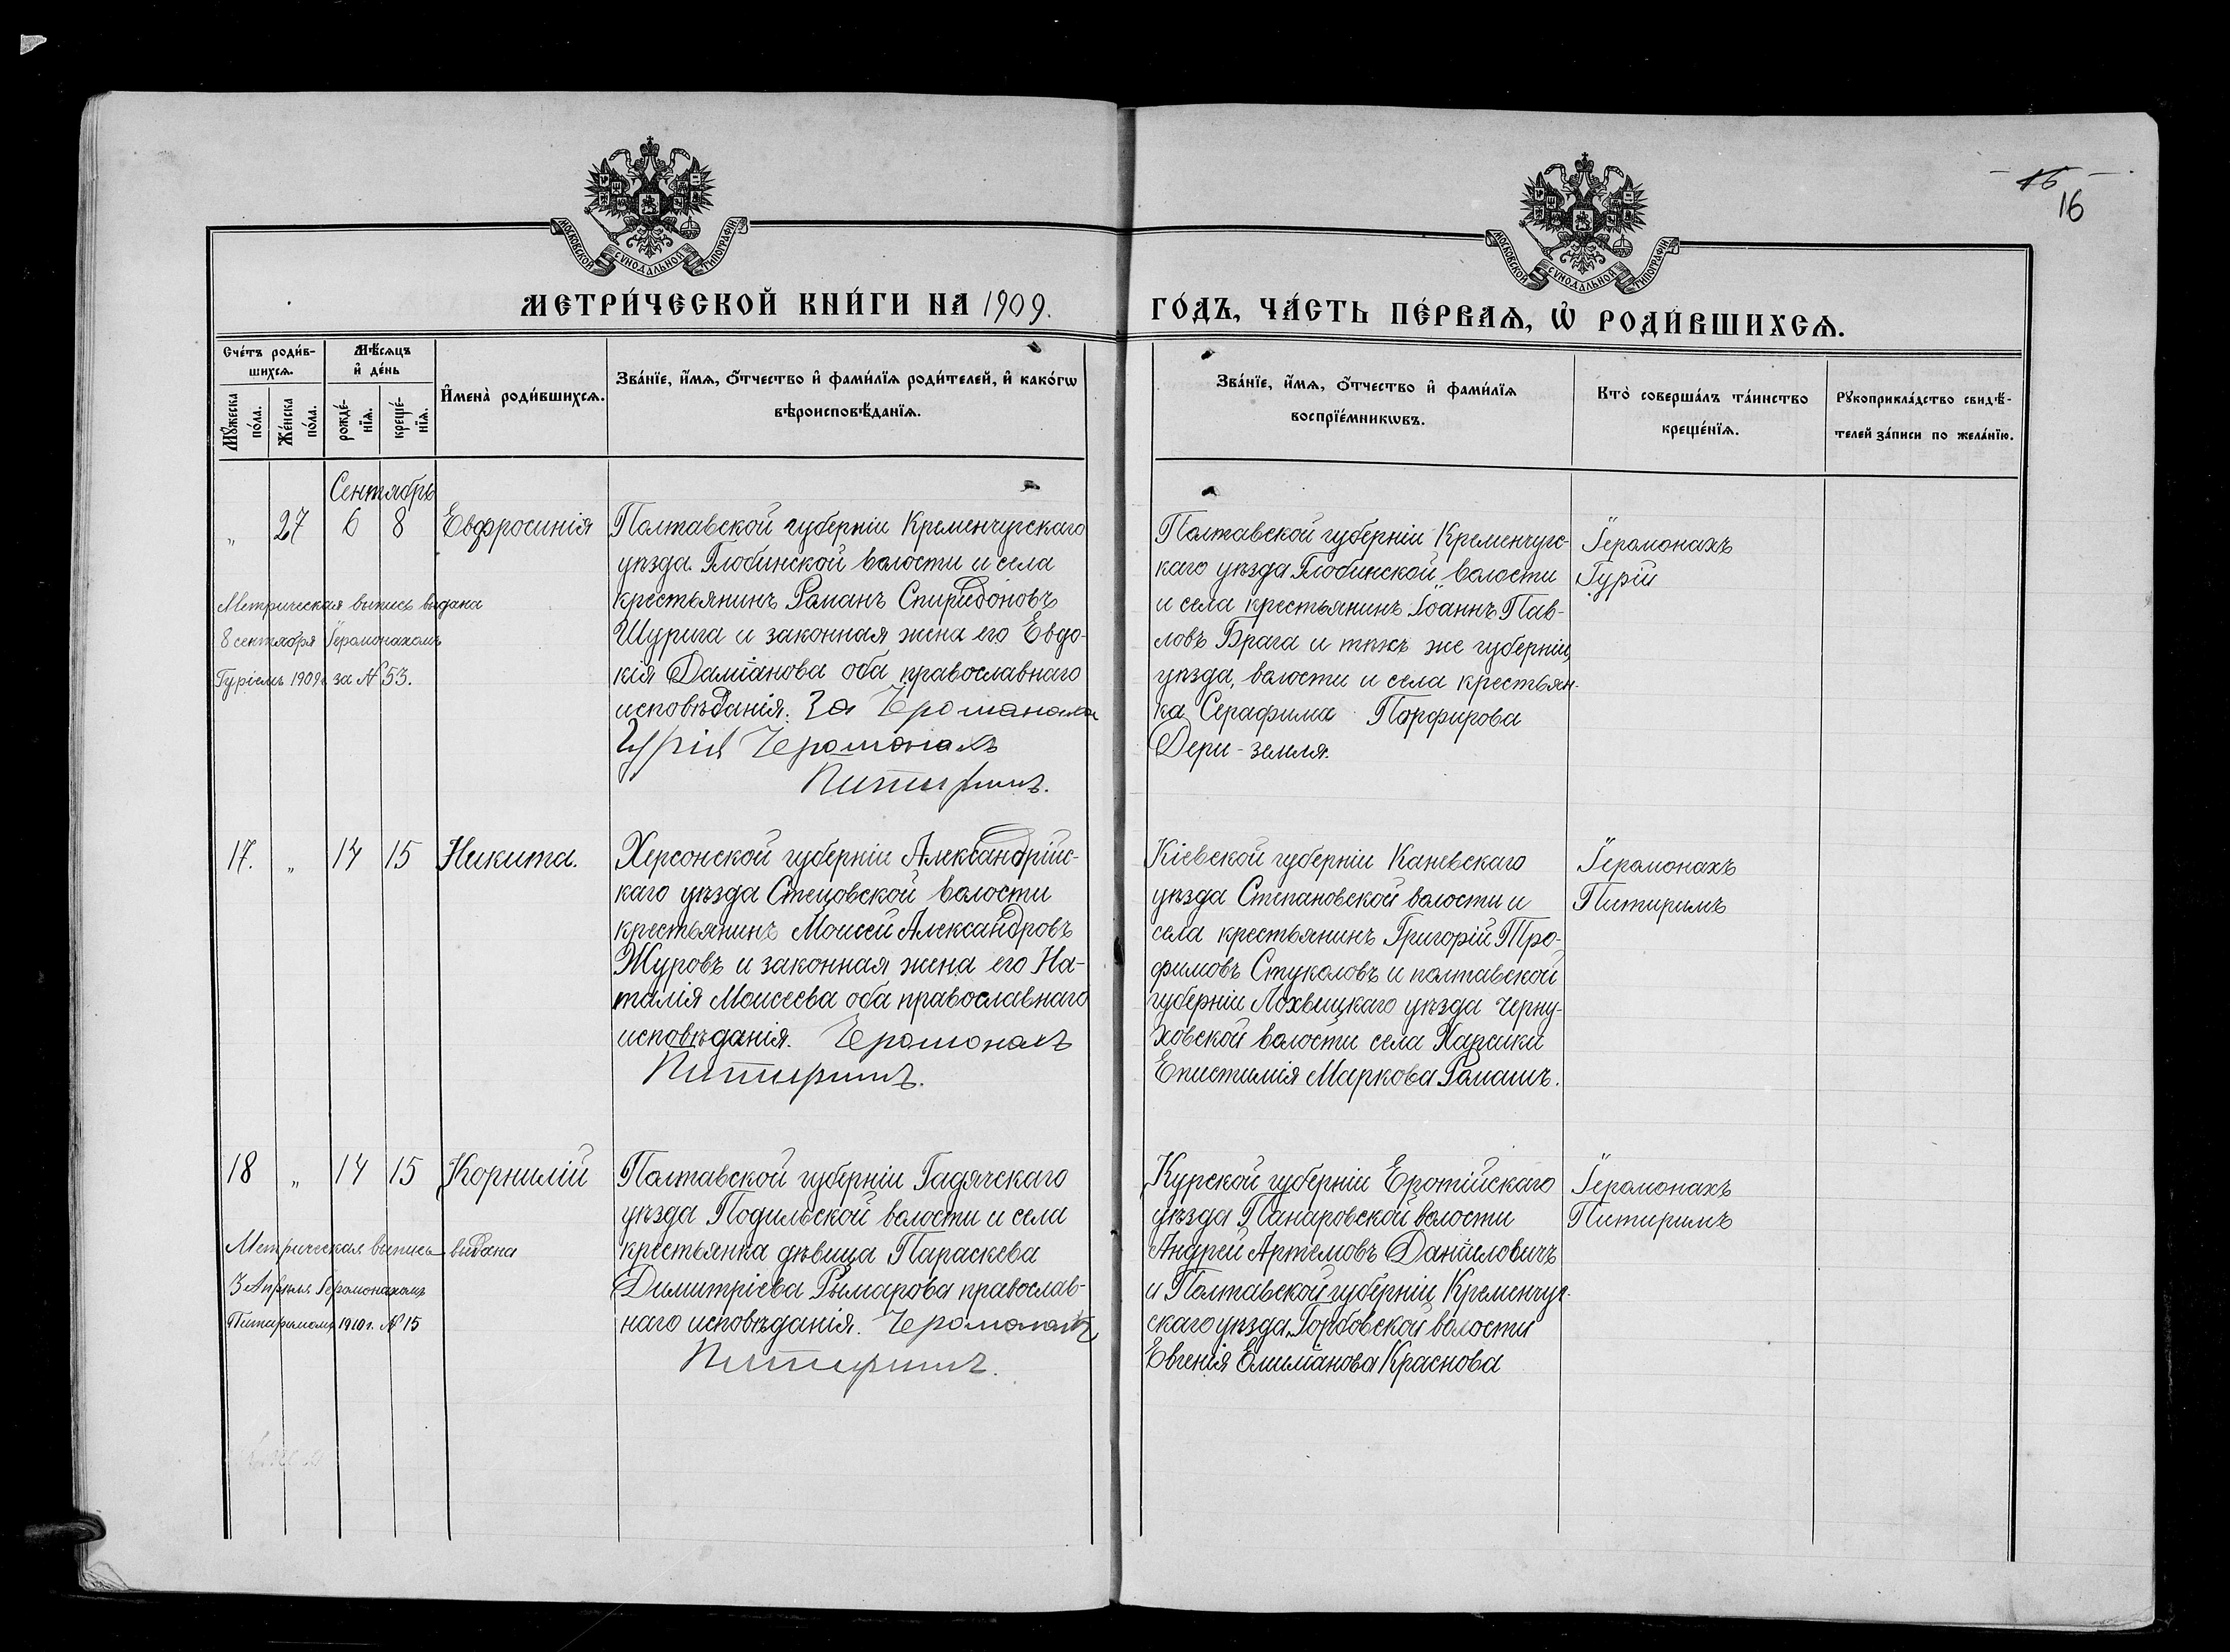 16
16
МОСКОВСКОЙ СѴНОДАЛЬНОЙ ТИПОГРАФІИ
МОСКОВСКОЙ СѴНОДАЛЬНОЙ ТИПОГРАФІИ
МЕТРИ́ЧЕСКОЙ КНИ́ГИ НА 1909.
ГО́ДЪ, ЧА́СТЬ ПЕ́РВАѦ, Ѡ҆ РОДИ́ВШИХСѦ.
Сче́тъ роди́в-
шихсѧ.
Мꙋ́жеска по́ла.
Же́нска по́ла.
Мѣ́сѧцъ
и҆ де́нь
рожде́-
нїѧ.
креще́-
нїѧ.
И҆мена̀ роди́вшихсѧ.
Зва́нїе, и҆́мѧ, ѻ҆́тчество и҆ фами́лїѧ роди́телей, и҆ како́гѡ
вѣроисповѣ́данїѧ.
Зва́нїе, и҆́мѧ, ѻ҆́тчество и҆ фами́лїѧ
воспрїе́мникѡвъ.
Кто̀ соверша́лъ та́инство
креще́нїѧ.
Рꙋкоприкла́дство свидѣ́-
телей за́писи по жела́нїю.
Сентябрь
„ 27 6 8 Евфросинія
Метрическая выпись выдана
8 сентября Іеромонахомъ
Гуріемъ 1909г за № 53.
Полтавской губерніи Кременчугскаго
уѣзда Глобинской волости и села
крестьянинъ Романъ Спиридоновъ
Шурига и законная жена его Евдо-
кія Даміанова оба православнаго
исповѣданія. За Іеромонаха
Гурія Іеромонахъ
Питиримъ.
Полтавской губерніи Кременчугс-
каго уѣзда Глобинской волости
и села крестьянинъ Іоаннъ Пав-
ловъ Брага и тѣхъ же губерніи,
уѣзда, волости и села крестьян-
ка Серафима Порфирова
Дери-земля.
Іеромонахъ
Гурій
17. „ 14 15 Никита.
Херсонской губерніи Александрійс-
каго уѣзда Стецовской волости
крестьянинъ Моисей Александровъ
Журовъ и законная жена его На-
талія Моисеева оба православнаго
исповѣданія. Іеромонахъ
Питиримъ.
Кіевской губерніи Каневскаго
уѣзда Степановской волости и
села крестьянинъ Григорій Тро-
фимовъ Стукаловъ и полтавской
губерніи Лохвицкаго уѣзда Черну-
ховской волости села Харсики
Епистимія Маркова Ромашъ.
Іеромонахъ
Питиримъ
18 „ 14 15 Корнилій
Метрическая выпись выдана
3 Апрѣля Іеромонахомъ
Питиримомъ 1910г. № 15
Полтавской губерніи Гадячскаго
уѣзда Подильской волости и села
крестьянка дѣвица Параскева
Димитріева Рымарова православ-
наго исповѣданія. Іеромонахъ
Питиримъ.
Курской губерніи
уѣзда Панаровской волости
Андрей Артемовъ Даниловичъ
и Полтавской губерніи Кременчуг-
скаго уѣзда волости
Евгенія Краснова
Іеромонахъ
Питиримъ